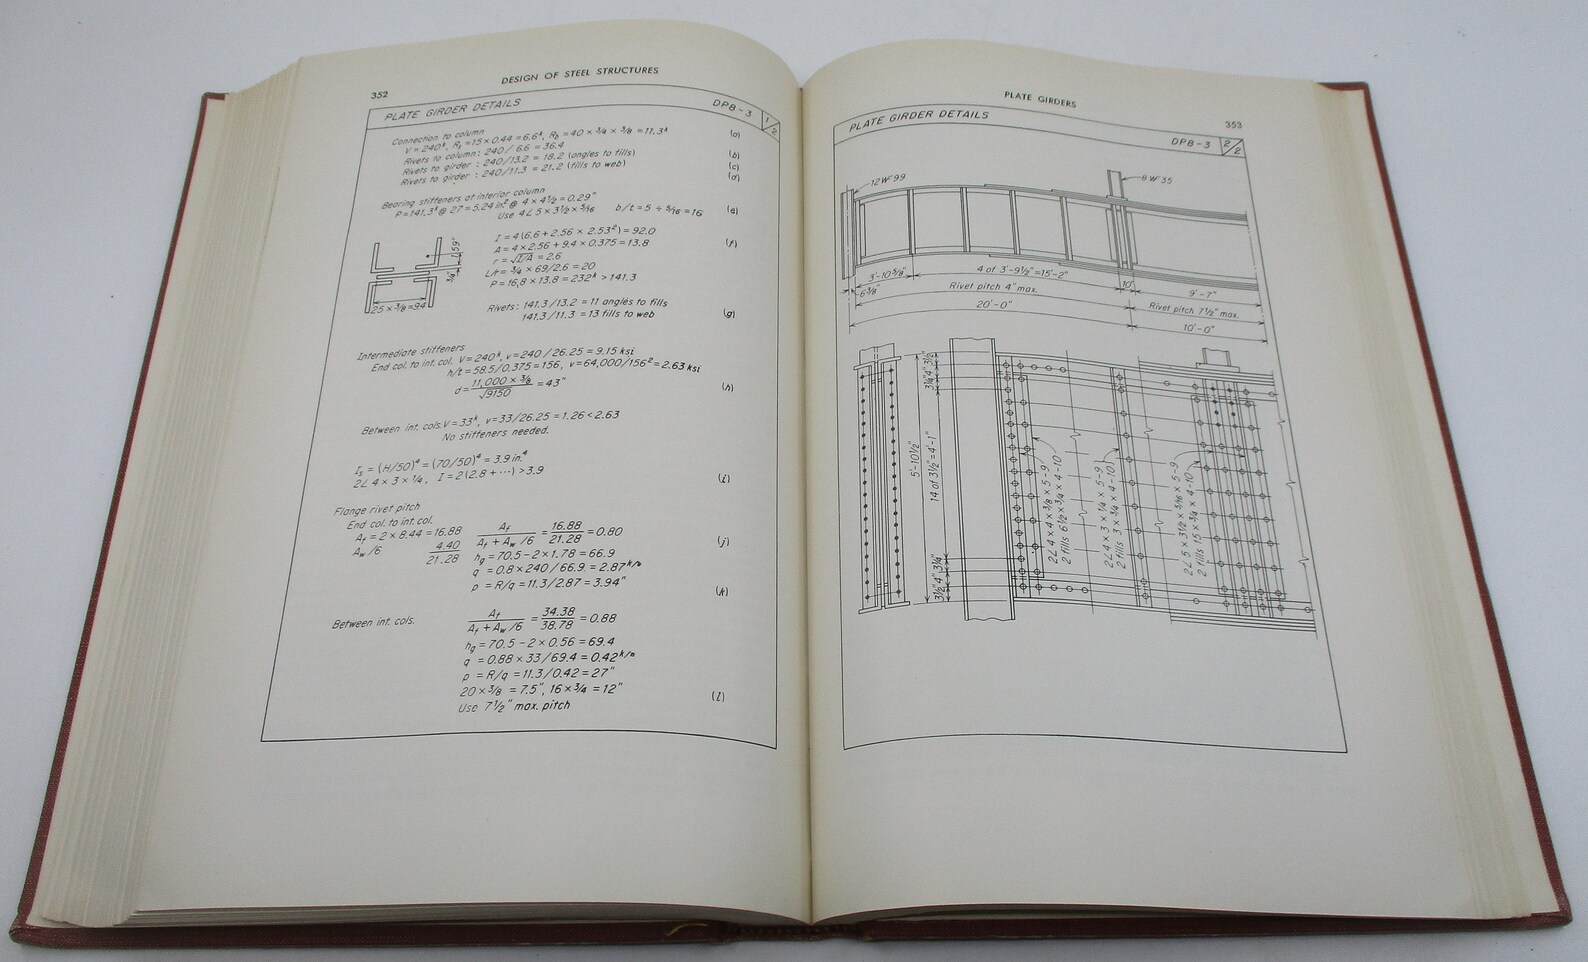 352
DESIGN OF STEEL STRUCTURES
PLATE GIRDER DETAILS
DP8-3 1/2
Connection to column
V=240ᵏ, Rₛ=15×0.44=6.6ᵏ, R_b=40×¾×⅜=11.3ᵏ (a)
Rivets to column: 240/6.6=36.4 (b)
Rivets to girder: 240/13.2=18.2 (angles to fills) (c)
Rivets to girder: 240/11.3=21.2 (fills to web) (d)
Bearing stiffeners at interior column
P=141.3ᵏ@27=5.24 in² @ 4×4½=0.29"
Use 4∠5×3½×5/16 b/t=5÷5/16=16 (e)
I=4(6.6+2.56×2.53²)=92.0
A=4×2.56+9.4×0.375=13.8 (f)
r=√I/A=2.6
L/r=¾×69/2.6=20
P=16.8×13.8=232ᵏ>141.3
1.59"
¾"
25×⅜=9.4
Rivets: 141.3/13.2=11 angles to fills
141.3/11.3=13 fills to web (g)
Intermediate stiffeners
End col. to int. col. V=240ᵏ, v=240/26.25=9.15 ksi
h/t=58.5/0.375=156, v=64,000/156²=2.63 ksi
d=11,000×⅜/√9150=43" (h)
Between int. cols. V=33ᵏ, v=33/26.25=1.26<2.63
No stiffeners needed.
Iₛ=(H/50)⁴=(70/50)⁴=3.9 in.⁴
2∠4×3×¼, I=2(2.8+···)>3.9 (i)
Flange rivet pitch
End col. to int. col.
A_f=2×8.44=16.88
A_w/6 4.40
21.28
A_f/(A_f+A_w/6)=16.88/21.28=0.80 (j)
h_g=70.5-2×1.78=66.9
q=0.8×240/66.9=2.87 k/in
p=R/q=11.3/2.87=3.94" (k)
Between int. cols.
A_f/(A_f+A_w/6)=34.38/38.78=0.88
h_g=70.5-2×0.56=69.4
q=0.88×33/69.4=0.42 k/in
p=R/q=11.3/0.42=27"
20×⅜=7.5", 16×¾=12"
Use 7½" max. pitch (l)
PLATE GIRDERS
353
PLATE GIRDER DETAILS
DP8-3 2/2
12WF99
8WF35
3'-10⅝"
4 of 3'-9½"=15'-2"
10"
9'-7"
6⅜"
Rivet pitch 4" max.
Rivet pitch 7½" max.
20'-0"
10'-0"
3¼"4"3½"
5'-10½"
14 of 3½"=4'-1"
3½"4"3¼"
2∠4×4×⅜×5-9
2 fills 6½×¾×4-10
2∠4×3×¼×5-9
2 fills 3×¾×4-10
2∠5×3½×5/16×5-9
2 fills 15×¾×4-10